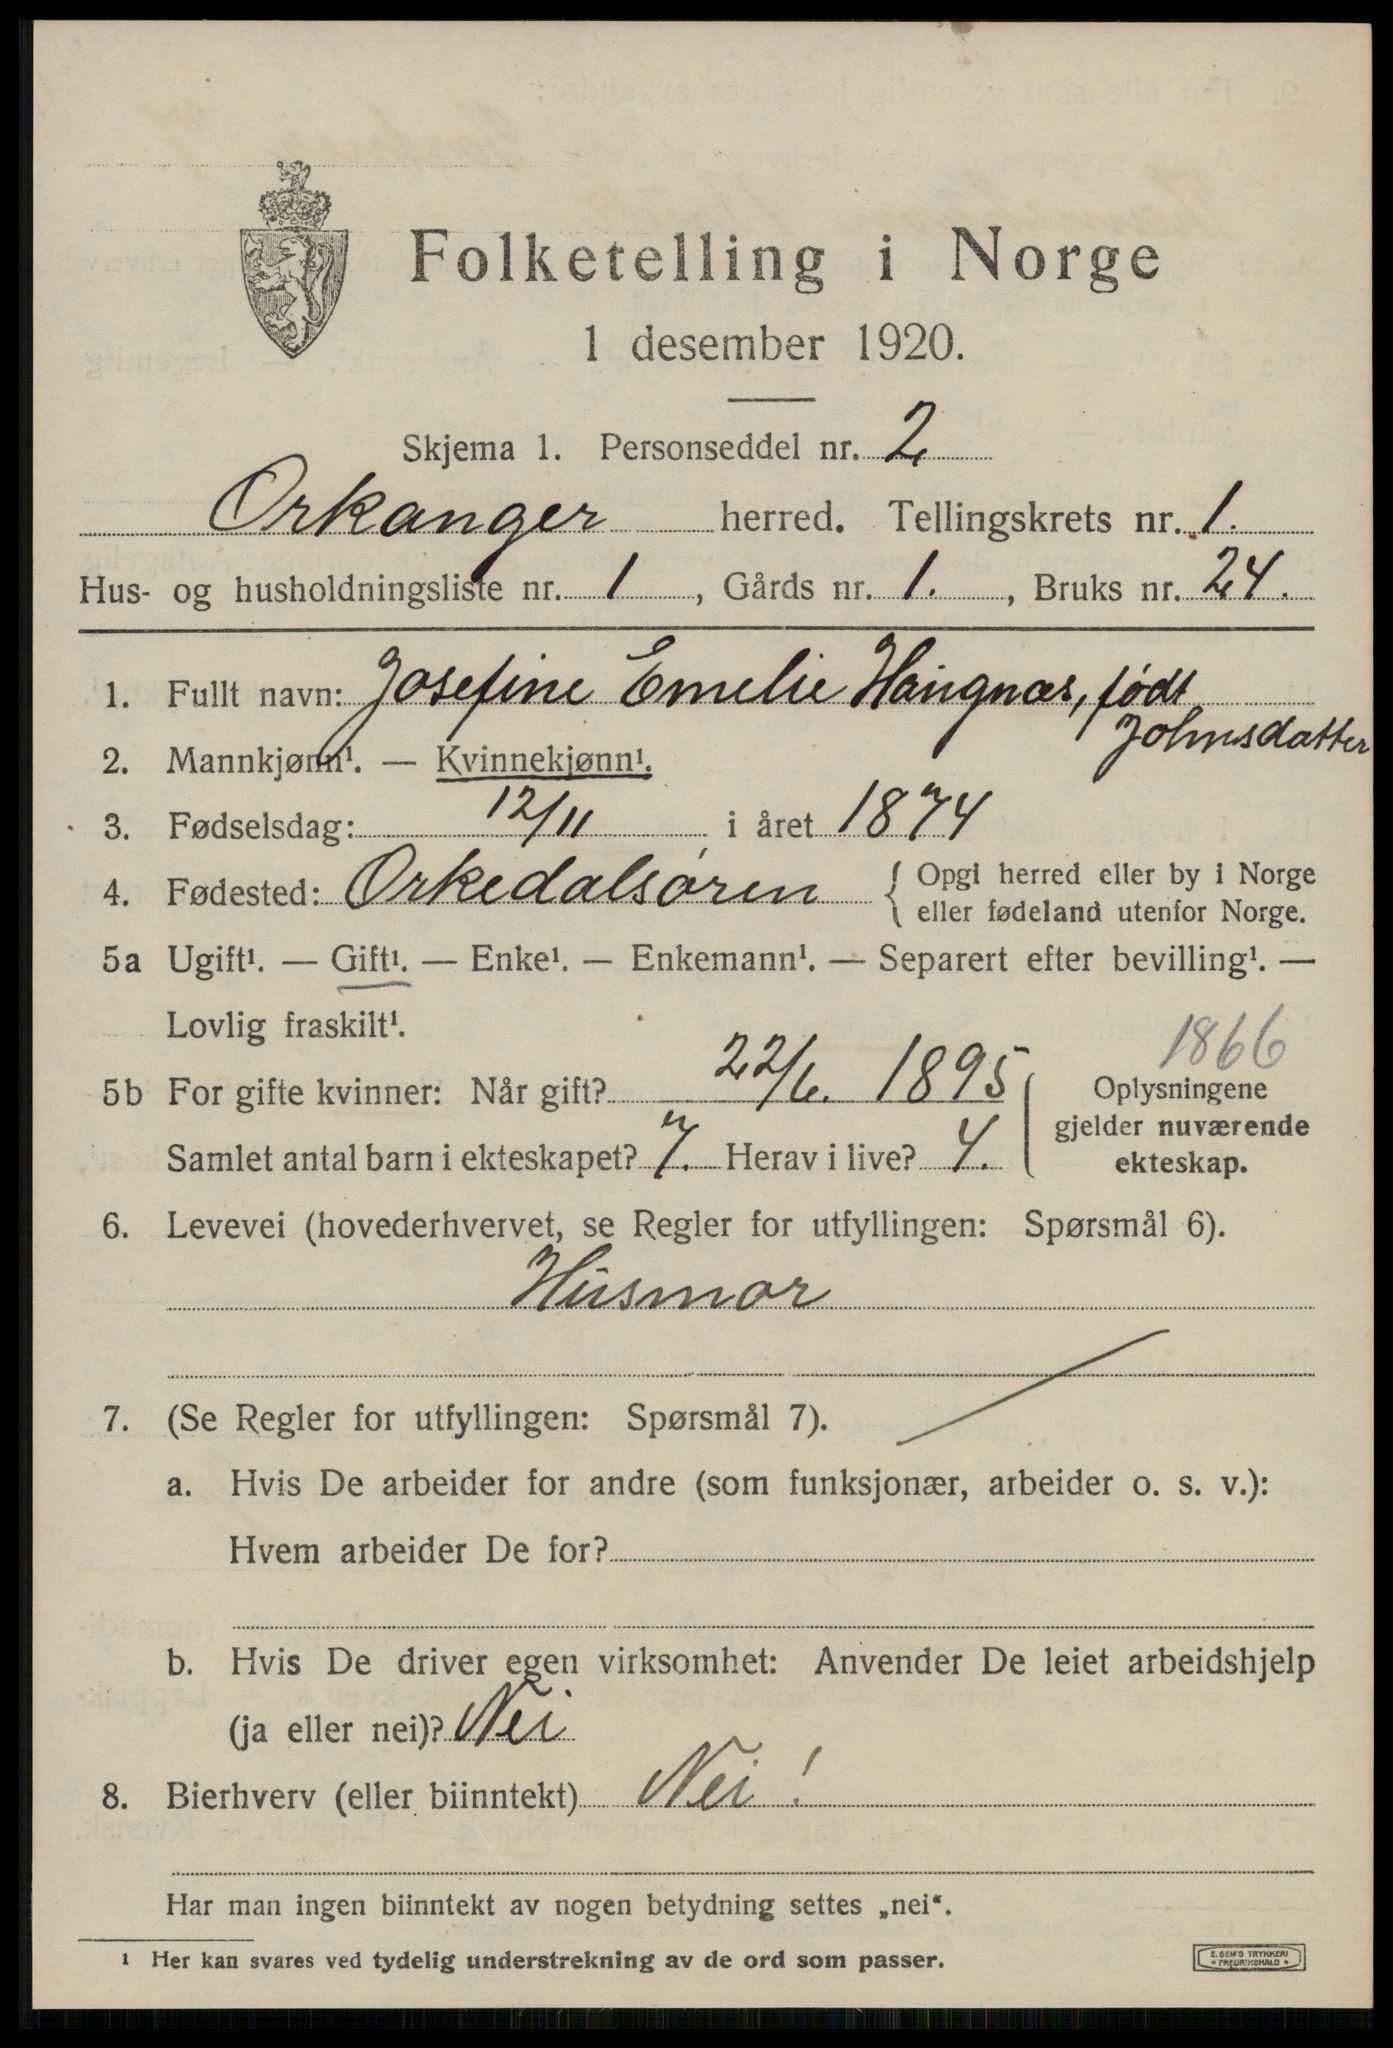 Folketelling i Norge
1 desember 1920.
Skjema 1. Personseddel nr. 2
Orkanger herred. Tellingskrets nr. 1.
Hus- og husholdningsliste nr. 1, Gårds nr. 1., Bruks nr. 24.
1. Fullt navn: Josefine Emelie Haugnæs, født
Johnsdatter
2. Mannkjønn¹. — Kvinnekjønn¹.
3. Fødselsdag: 12/11 i året 1874
4. Fødested: Orkedalsøren { Opgi herred eller by i Norge
eller fødeland utenfor Norge.
5a Ugift¹. — Gift¹. — Enke¹. — Enkemann¹. — Separert efter bevilling¹. —
Lovlig fraskilt¹.
1866
5b For gifte kvinner: Når gift? 22/6. 1895 Oplysningene
gjelder nuværende
Samlet antal barn i ekteskapet? 7. Herav i live? 4. ekteskap.
6. Levevei (hovederhvervet, se Regler for utfyllingen: Spørsmål 6).
Husmor
7. (Se Regler for utfyllingen: Spørsmål 7).
a. Hvis De arbeider for andre (som funksjonær, arbeider o. s. v.):
Hvem arbeider De for?
b. Hvis De driver egen virksomhet: Anvender De leiet arbeidshjelp
(ja eller nei)? Nei
8. Bierhverv (eller biinntekt) Nei!
Har man ingen biinntekt av nogen betydning settes „nei“.
1 Her kan svares ved tydelig understrekning av de ord som passer.
E. SEM'S TRYKKERI
• FREDRIKSHALD •